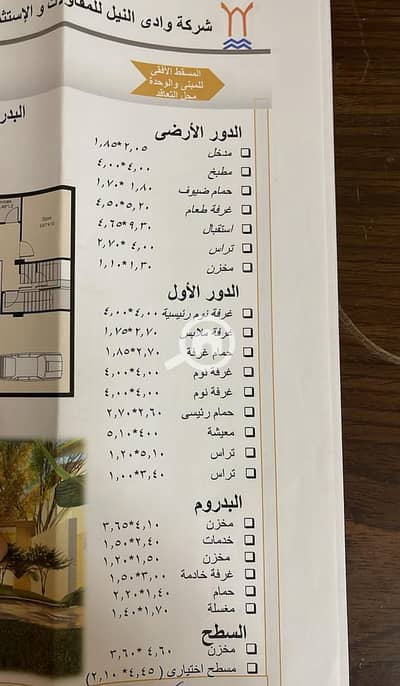 شركة وادى النيل للمقاولات و الإستثم
المسقط الأفقى
للمبنى والوحدة
محل التعاقد
البدر
الدور الأرضى
مدخل ٢,٠٥*١,٨٥
مطبخ ٤,٠٠*٤,٠٠
حمام ضيوف ١,٨٠*١,٧٠
غرفة طعام ٥,٢٠*٤,٥٠
استقبال ٩,٣٠*٤,٦٥
تراس ٤,٠٠*٢,٧٠
مخزن ١,٣٠*١,١٠
الدور الأول
غرفة نوم رئيسية ٤,٠٠*٤,٠٠
غرفة ملابس ٢,٧٠*١,٧٥
حمام غرفة ٢,٧٠*١,٨٥
غرفة نوم ٤,٠٠*٤,٠٠
غرفة نوم ٤,٠٠*٤,٠٠
حمام رئيسى ٢,٦٠*٢,٧٠
معيشة ٤٠٠*٥,١٠
تراس ٥,١٠*١,٢٠
تراس ٣,٤٠*١,٠٠
البدروم
مخزن ٤,١٠*٣,٦٥
خدمات ٢,٤٠*١,٥٠
مخزن ١,٢٠*١,٥٠
غرفة خادمة ٣,٠٠*١,٥٠
حمام ١,٤٠*٢,٢٠
مغسلة ١,٧٠*١,٤٠
السطح
مخزن ٤,٦٠*٣,٦٠
مسطح اختيارى ( ٤,٤٥*٢,١٠ )